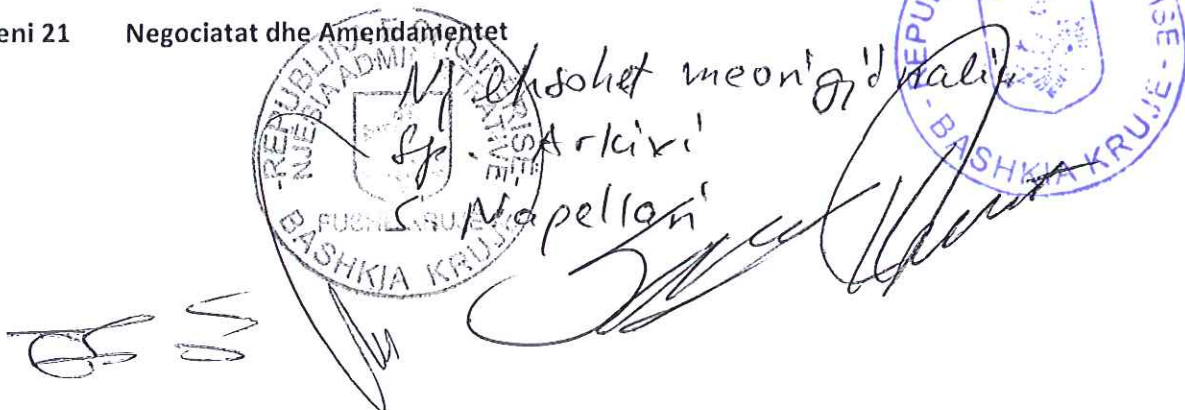 eni 21 Negociatat dhe Amendamentet
Njehsohet me origjinalin
Sp. Arkivi
S. Napellani
-REPUBLIKA E SHQIPERISE-
NJESIA ADMINISTRATIVE
FUSHE KRUJE
BASHKIA KRUJE
REPU
ISE-
-BASHKIA KRUJE-